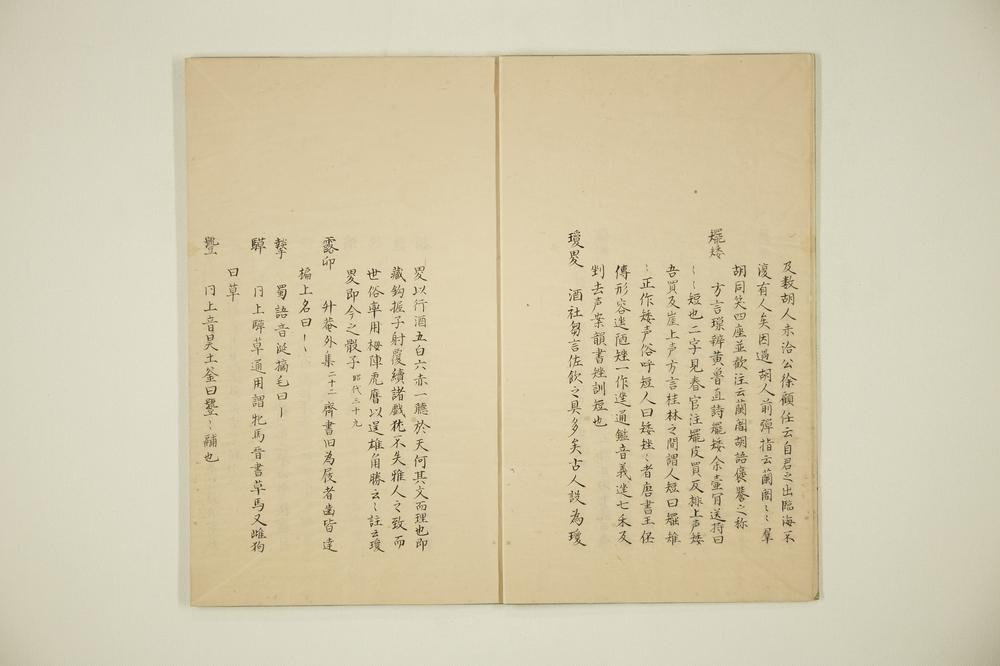 及数胡人未洽公徐顧任云自君之出臨海不
復有人矣因過胡人前彈指云蘭闍〻〻羣
胡同笑四座並歡注云蘭闍胡語褒譽之称
䎱矮
方言㻽辨黄魯直詩䎱矮余壷冐送荷曰
〻〻短也二字見春官注䎱皮買反排上声矮
吾買反崖上声方言桂林之間謂人短曰䎱雉
〻正作矮声俗呼短人曰矮矬〻者唐書王伾
傳形容迯陋矬一作迯通鑑音義迯七禾反
剉去声案韻書矬訓短也
瓊畟 酒社芻言佐飲之具多矣古人設為瓊
畟以行酒五白六赤一聽於天何其文而理也即
藏鈎握子射覆續諸戯犹不失雅人之致而
世俗率用梭陣虎膺以逞雄角勝云〻註云瓊
畟即今之骰子 昭代三十九
露卯
升菴外集二十二齊書旧為屐者歯皆達
楄上名曰〻〻
㲠 蜀語音涎摛毛曰〻
騲 同上騲草通用謂牝馬晉書草馬又雌狗
曰草
同上音昊土釜曰〻鬴也